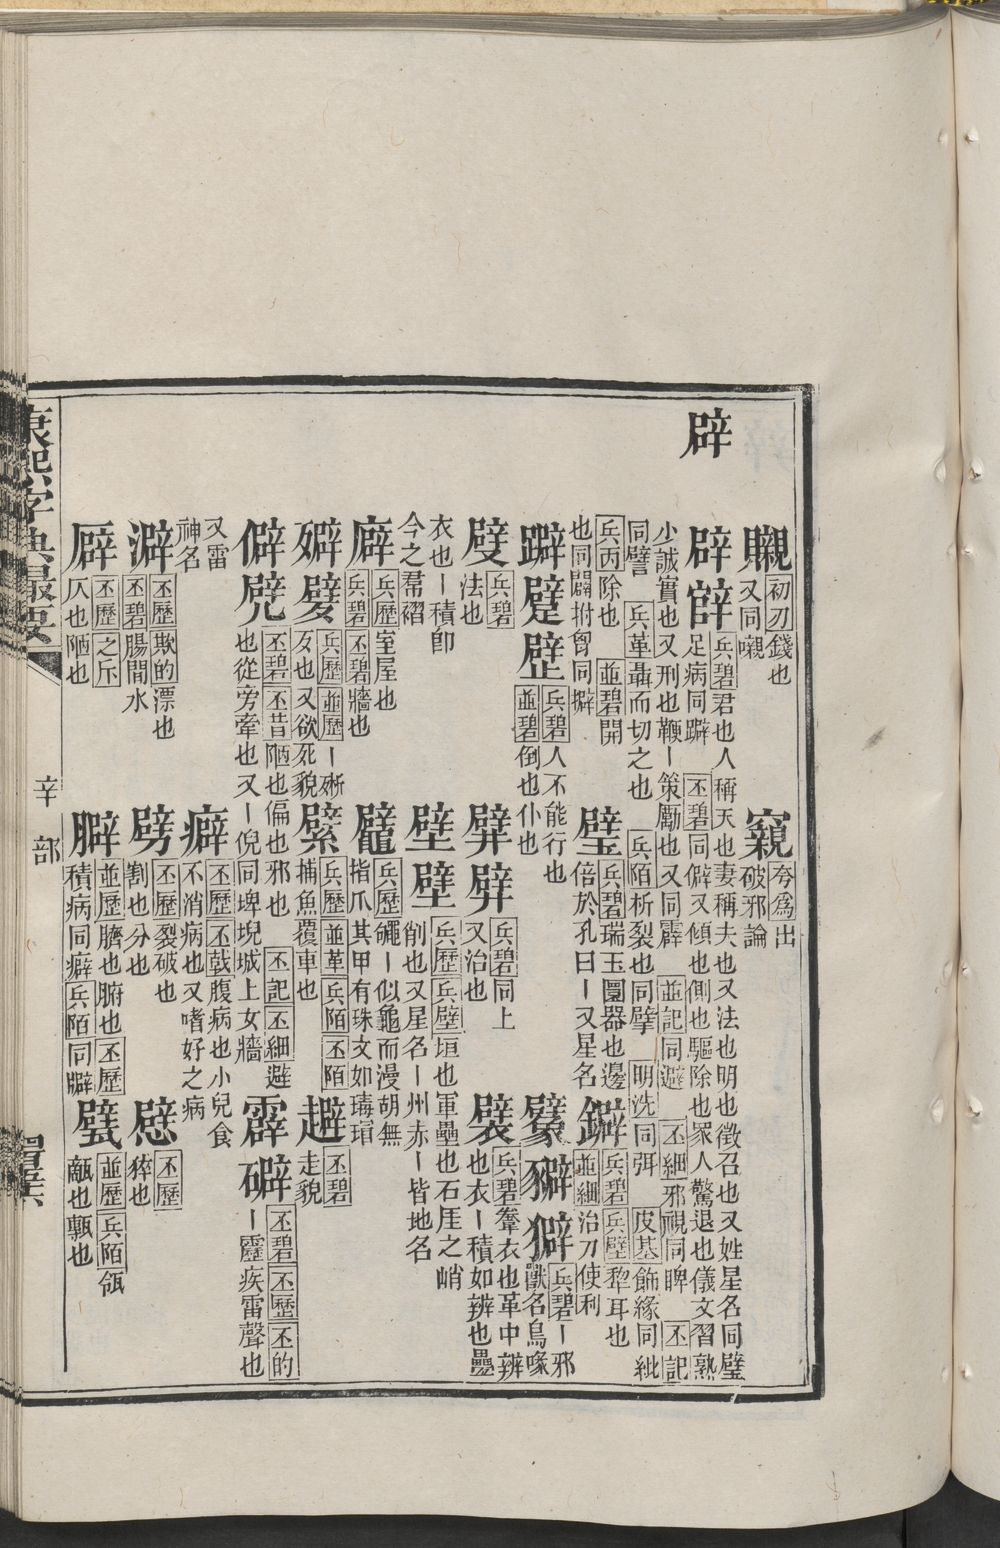 辟
𧸖 初刃錢也又同嚫
窺 夸爲出破邪論
辟 兵碧君也人稱天也妻稱夫也又法也明也徵召也又姓星名同璧足病同躃 丕碧同僻又傾也側也驅除也眾人驚退也儀文習熟
少誠實也又刑也鞭ー策勵也又同霹 並記同避 丕細邪視同睥 丕記
同譬 兵革聶而切之也 兵陌析裂也同擘 明洗同弭 皮基飾緣同紕
兵丙除也 並碧開
也同闢拊會同擗
璧 兵碧瑞玉圜器也邊倍於孔曰ー又星名
鐴 兵碧兵壁犂耳也並細治刀使利
躃躄 兵碧人不能行也並碧倒也仆也
獸名鳥喙 兵碧ー邪
兵碧法也
兵碧同上又治也
襞 兵碧韏衣也革中辨也衣ー積如辨也疊
衣也ー積卽
今之帬褶
壁 兵歷兵壁垣也軍壘也石厓之峭削也又星名ー州赤ー皆地名
廦 兵歷室屋也兵碧丕碧牆也
鼊 兵歷𪓟ー似龜而漫胡無指爪其甲有珠文如瑇瑁
嬖 兵歷並歷ー㛕歹也又欲死貌
繴 兵歷並革兵陌丕陌捕魚覆車也
丕碧走貌
僻 丕碧丕昔陋也偏也邪也 丕記丕細避也從旁牽也又ー倪同埤堄城上女牆
霹礔 丕碧丕歷丕的ー靂疾雷聲也
又雷
神名
癖 丕歷丕㦸腹病也小兒食不消病也又嗜好之病
澼 丕歷欺的漂也丕碧腸間水
劈 丕歷裂破也割也分也
憵 丕歷猝也
㕻 丕歷之斥仄也陋也
並歷臍也腑也丕歷積病同癖兵陌同𦢩
甓 並歷兵陌瓴甋也甎也
康熙字典撮要
辛部